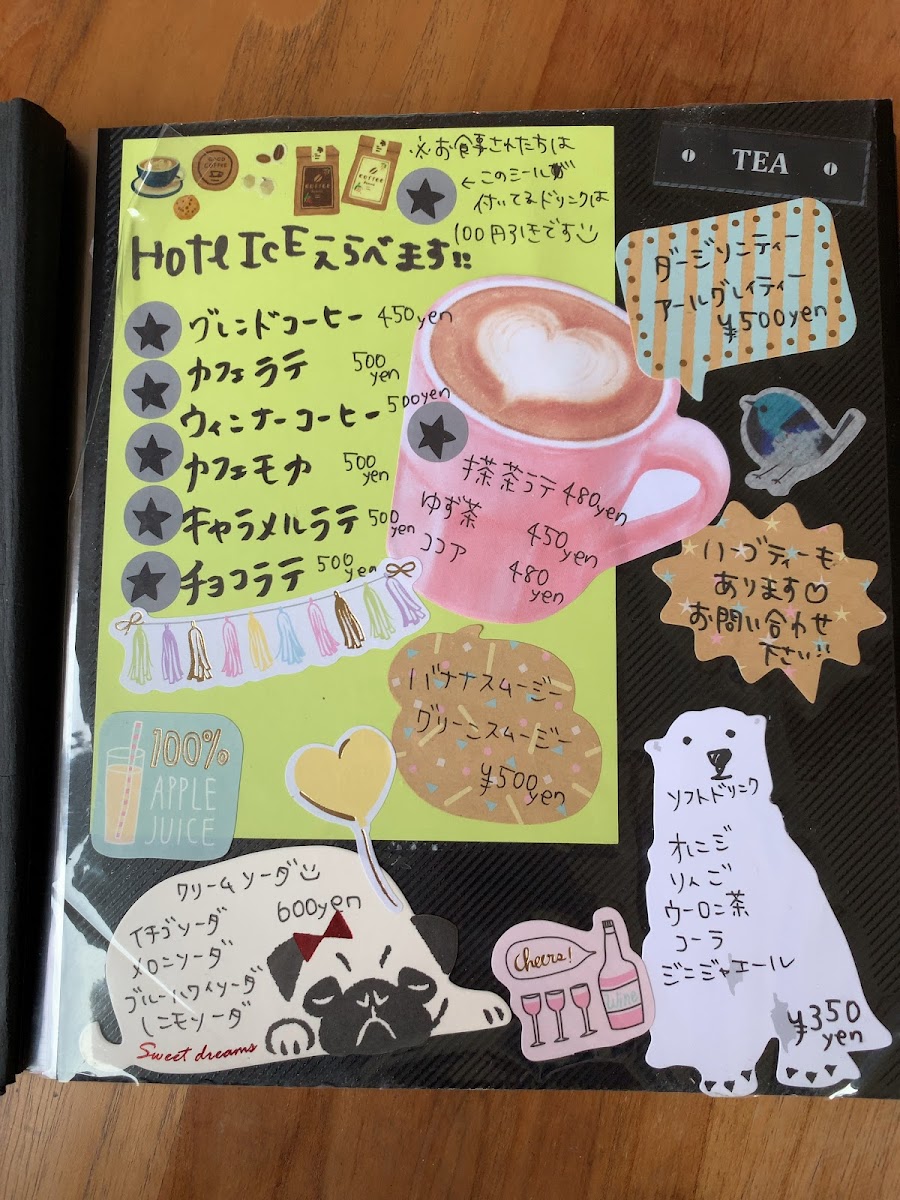 ※お食事された方は
←このシールが
付いてるドリンクは
100円引きです
HOt & ICE えらべます!!
ブレンドコーヒー 450yen
カフェラテ 500yen
ウィンナーコーヒー 500yen
カフェモカ 500yen
キャラメルラテ 500yen
チョコラテ 500yen
抹茶ラテ 480yen
ゆず茶 450yen
ココア 480yen
TEA
ダージリンティー
アールグレイティー
¥500yen
ハーブティーも
あります♡
お問い合わせ
下さい!!
バナナスムージー
グリーンスムージー
¥500yen
100%
APPLE
JUICE
クリームソーダ
600yen
イチゴソーダ
メロンソーダ
ブルーハワイソーダ
レモンソーダ
Sweet dreams
Cheers!
Wine
ソフトドリンク
オレンジ
りんご
ウーロン茶
コーラ
ジンジャエール
¥350yen